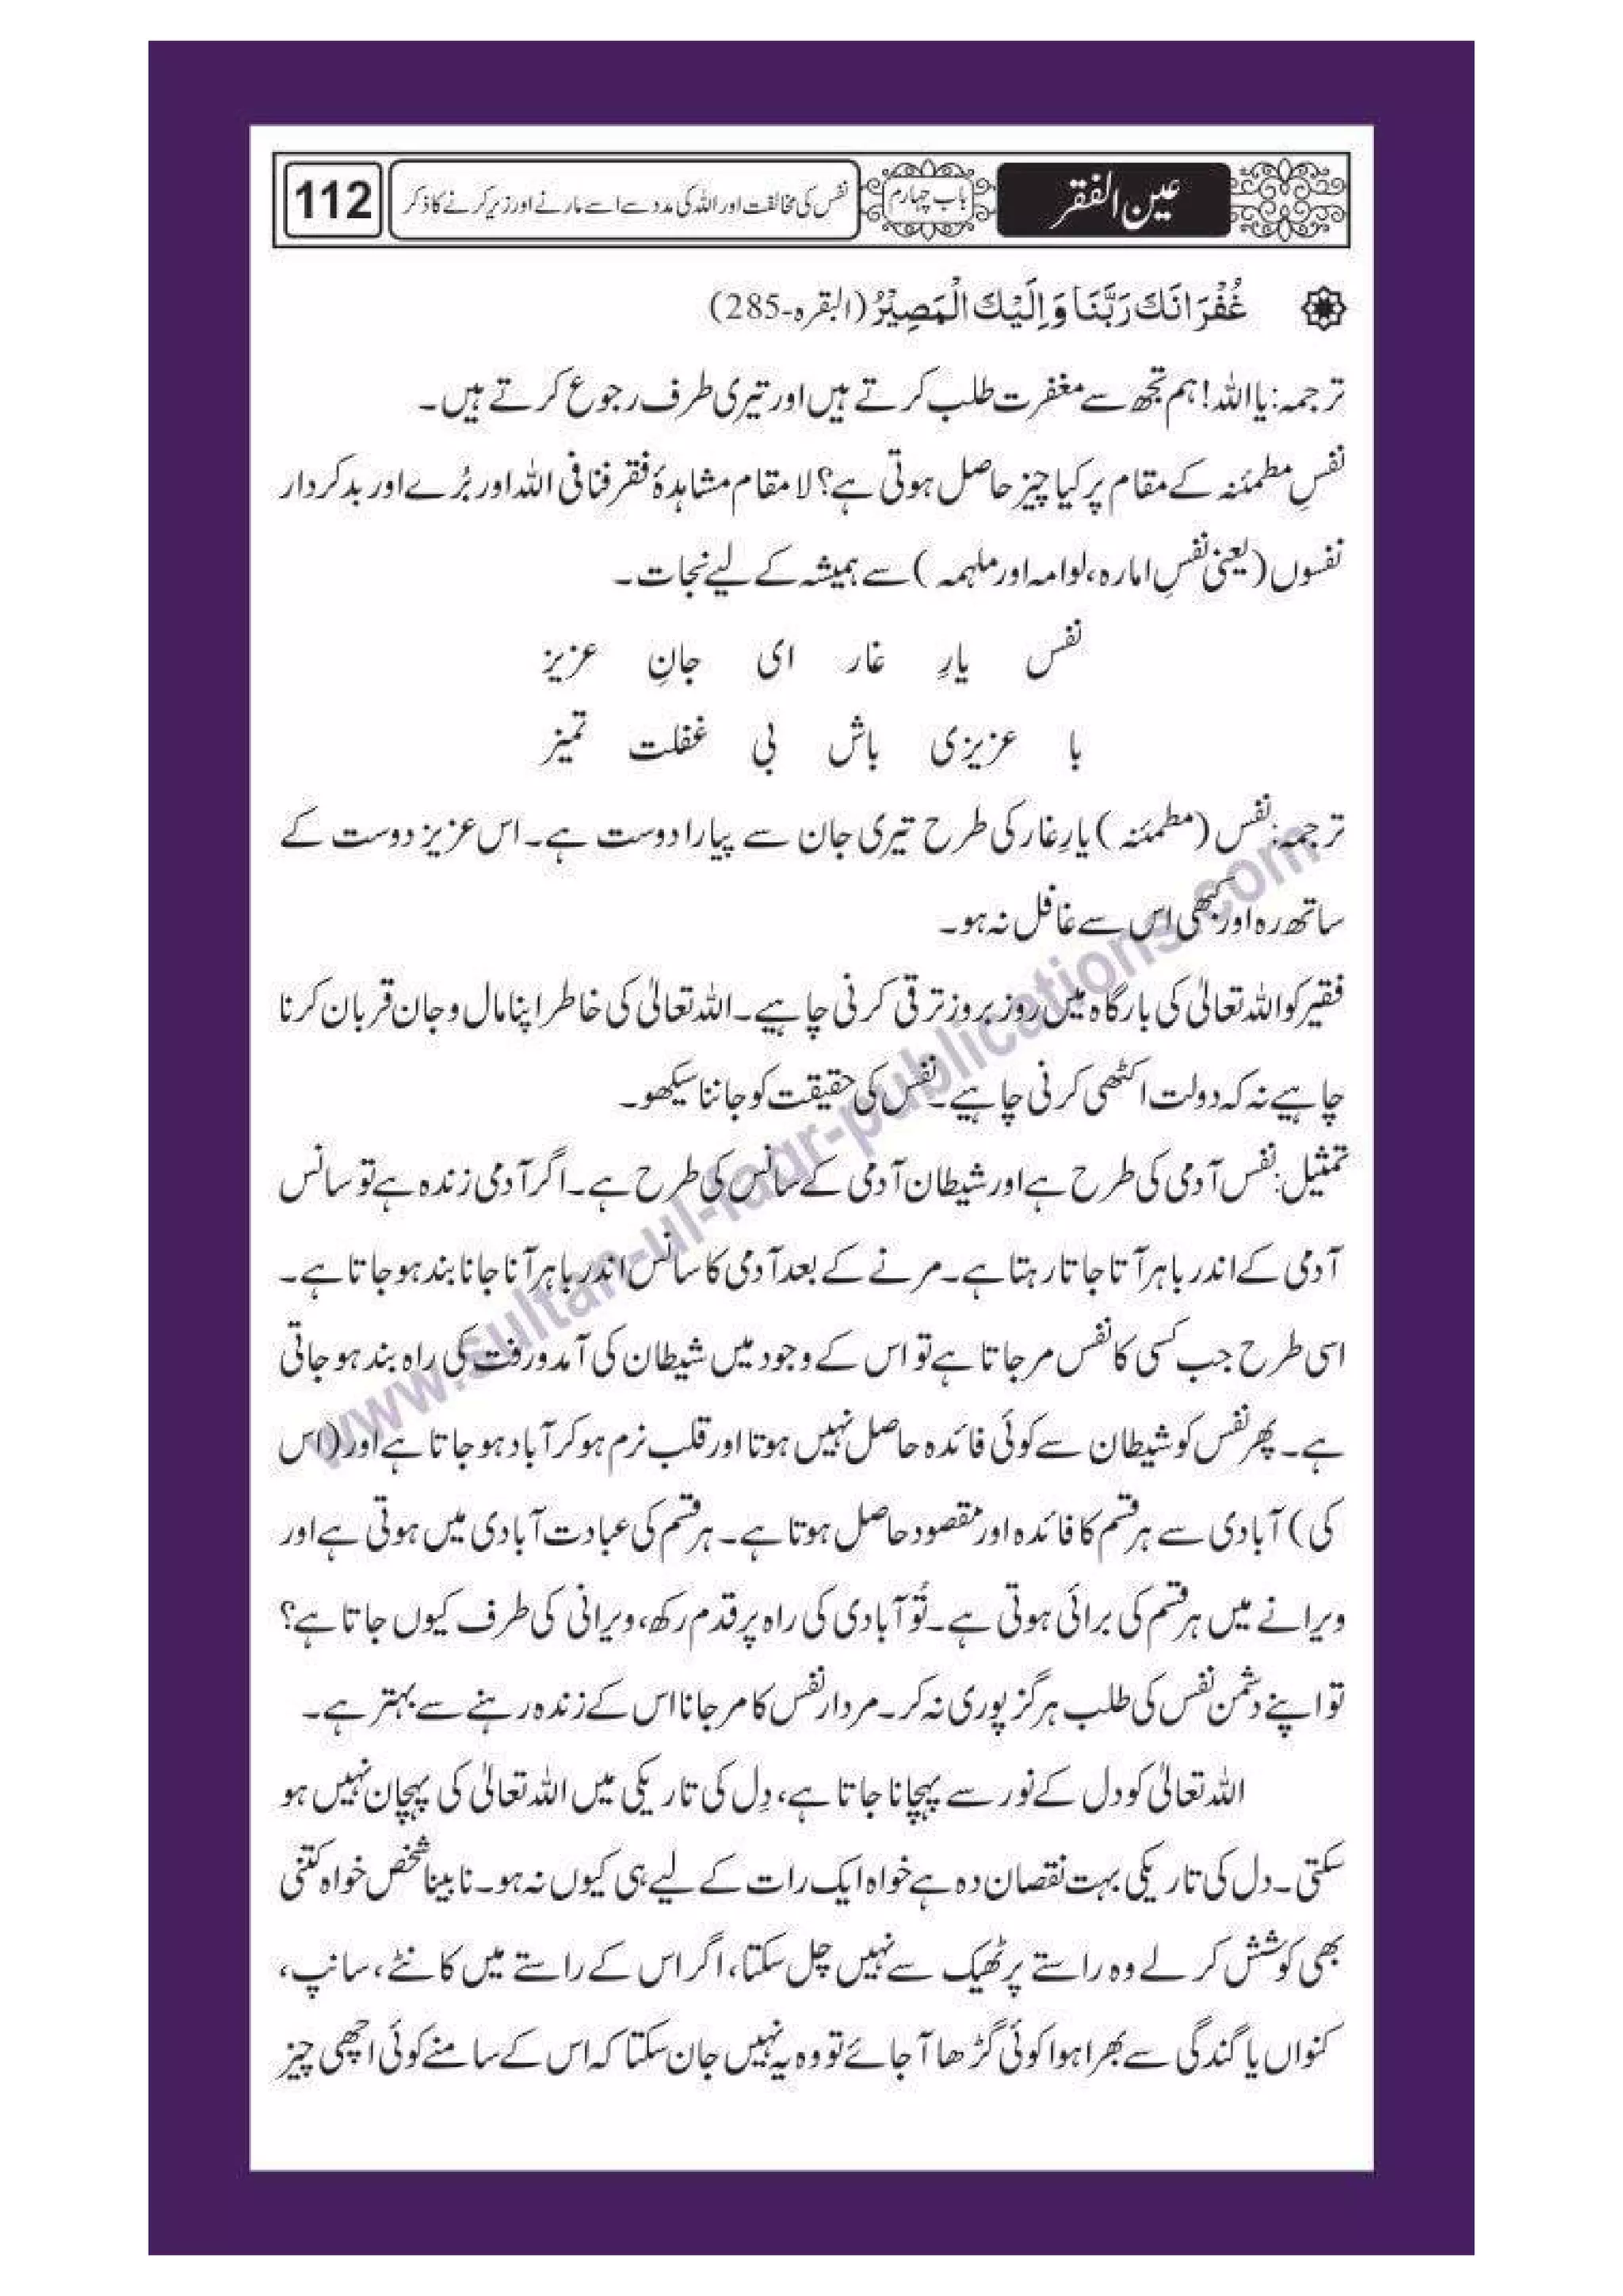 عین الفقر باب چہارم نفس کی مخالفت اور اللہ کی مدد سے اسے مارنے اور زیر کرنے کا ذکر 112
غُفْرَانَكَ رَبَّنَا وَاِلَيْكَ الْمَصِيْرُ (البقرہ-285)
ترجمہ: یا اللہ! ہم تجھ سے مغفرت طلب کرتے ہیں اور تیری طرف رجوع کرتے ہیں۔
نفسِ مطمئنہ کے مقام پر کیا چیز حاصل ہوتی ہے؟ لامقام مشاہدۂ فقر فنا فی اللہ اور بُرے اور بدکردار
نفسوں (یعنی نفسِ امارہ، لوامہ اور ملہمہ) سے ہمیشہ کے لیے نجات۔
نفس یارِ غار ای جانِ عزیز
با عزیزی باش بی غفلت تمیز
ترجمہ: نفس (مطمئنہ) یارِ غار کی طرح تیری جان سے پیارا دوست ہے۔ اس عزیز دوست کے
ساتھ رہ اور کبھی اس سے غافل نہ ہو۔
فقیر کو اللہ تعالیٰ کی بارگاہ میں روز بروز ترقی کرنی چاہیے۔ اللہ تعالیٰ کی خاطر اپنا مال و جان قربان کرنا
چاہیے نہ کہ دولت اکٹھی کرنی چاہیے۔ نفس کی حقیقت کو جاننا سیکھو۔
تمثیل: نفس آدمی کی طرح ہے اور شیطان آدمی کے سانس کی طرح ہے۔ اگر آدمی زندہ ہے تو سانس
آدمی کے اندر باہر آتا جاتا رہتا ہے۔ مرنے کے بعد آدمی کا سانس اندر باہر آنا جانا بند ہو جاتا ہے۔
اسی طرح جب کسی کا نفس مر جاتا ہے تو اس کے وجود میں شیطان کی آمدورفت کی راہ بند ہو جاتی
ہے۔ پھر نفس کو شیطان سے کوئی فائدہ حاصل نہیں ہوتا اور قلب نرم ہو کر آباد ہو جاتا ہے اور (اس
کی) آبادی سے ہر قسم کا فائدہ اور مقصود حاصل ہوتا ہے۔ ہر قسم کی عبادت آبادی میں ہوتی ہے اور
ویرانے میں ہر قسم کی برائی ہوتی ہے۔ تُو آبادی کی راہ پر قدم رکھ، ویرانی کی طرف کیوں جاتا ہے؟
تو اپنے دشمن نفس کی طلب ہرگز پوری نہ کر۔ مردار نفس کا مر جانا اس کے زندہ رہنے سے بہتر ہے۔
اللہ تعالیٰ کو دل کے نور سے پہچانا جاتا ہے، دِل کی تاریکی میں اللہ تعالیٰ کی پہچان نہیں ہو
سکتی۔ دل کی تاریکی بہت نقصان دہ ہے خواہ ایک رات کے لیے ہی کیوں نہ ہو۔ نابینا شخص خواہ کتنی
بھی کوشش کر لے وہ راستے پر ٹھیک سے نہیں چل سکتا، اگر اس کے راستے میں کانٹے، سانپ،
کنواں یا گندگی سے بھرا ہوا کوئی گڑھا آ جائے تو وہ یہ نہیں جان سکتا کہ اس کے سامنے کوئی اچھی چیز
www.sultan-ul-faqr-publications.com